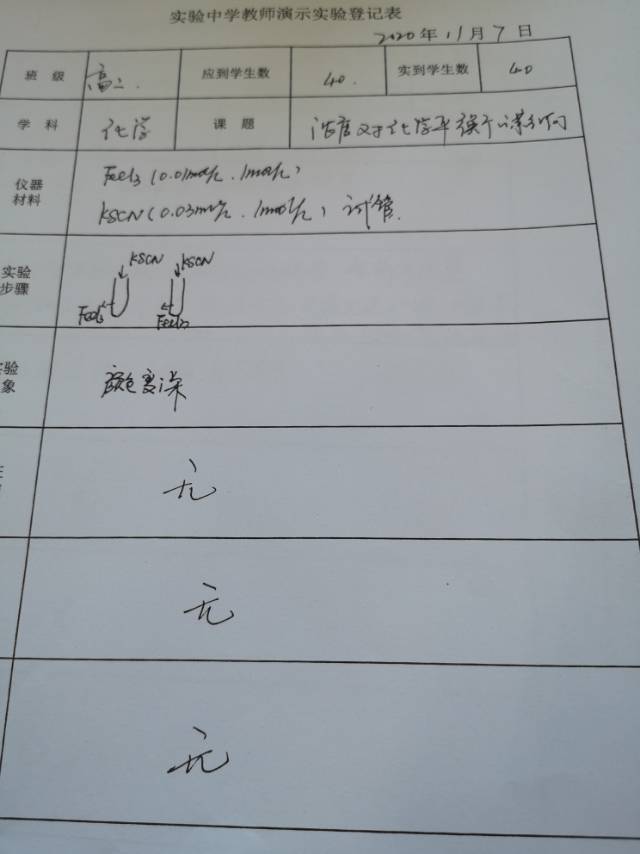 实验中学教师演示实验登记表
2020年11月7日
班 级 高二. 应到学生数 40. 实到学生数 40
学 科 化学 课 题 浓度对化学平衡的影响
仪器 FeCl3(0.01mol/L、1mol/L)
材料 KSCN(0.03mol/L、1mol/L) 试管.
实验 KSCN KSCN
步骤 FeCl3 FeCl3
验
象 颜色变深
无
无
无